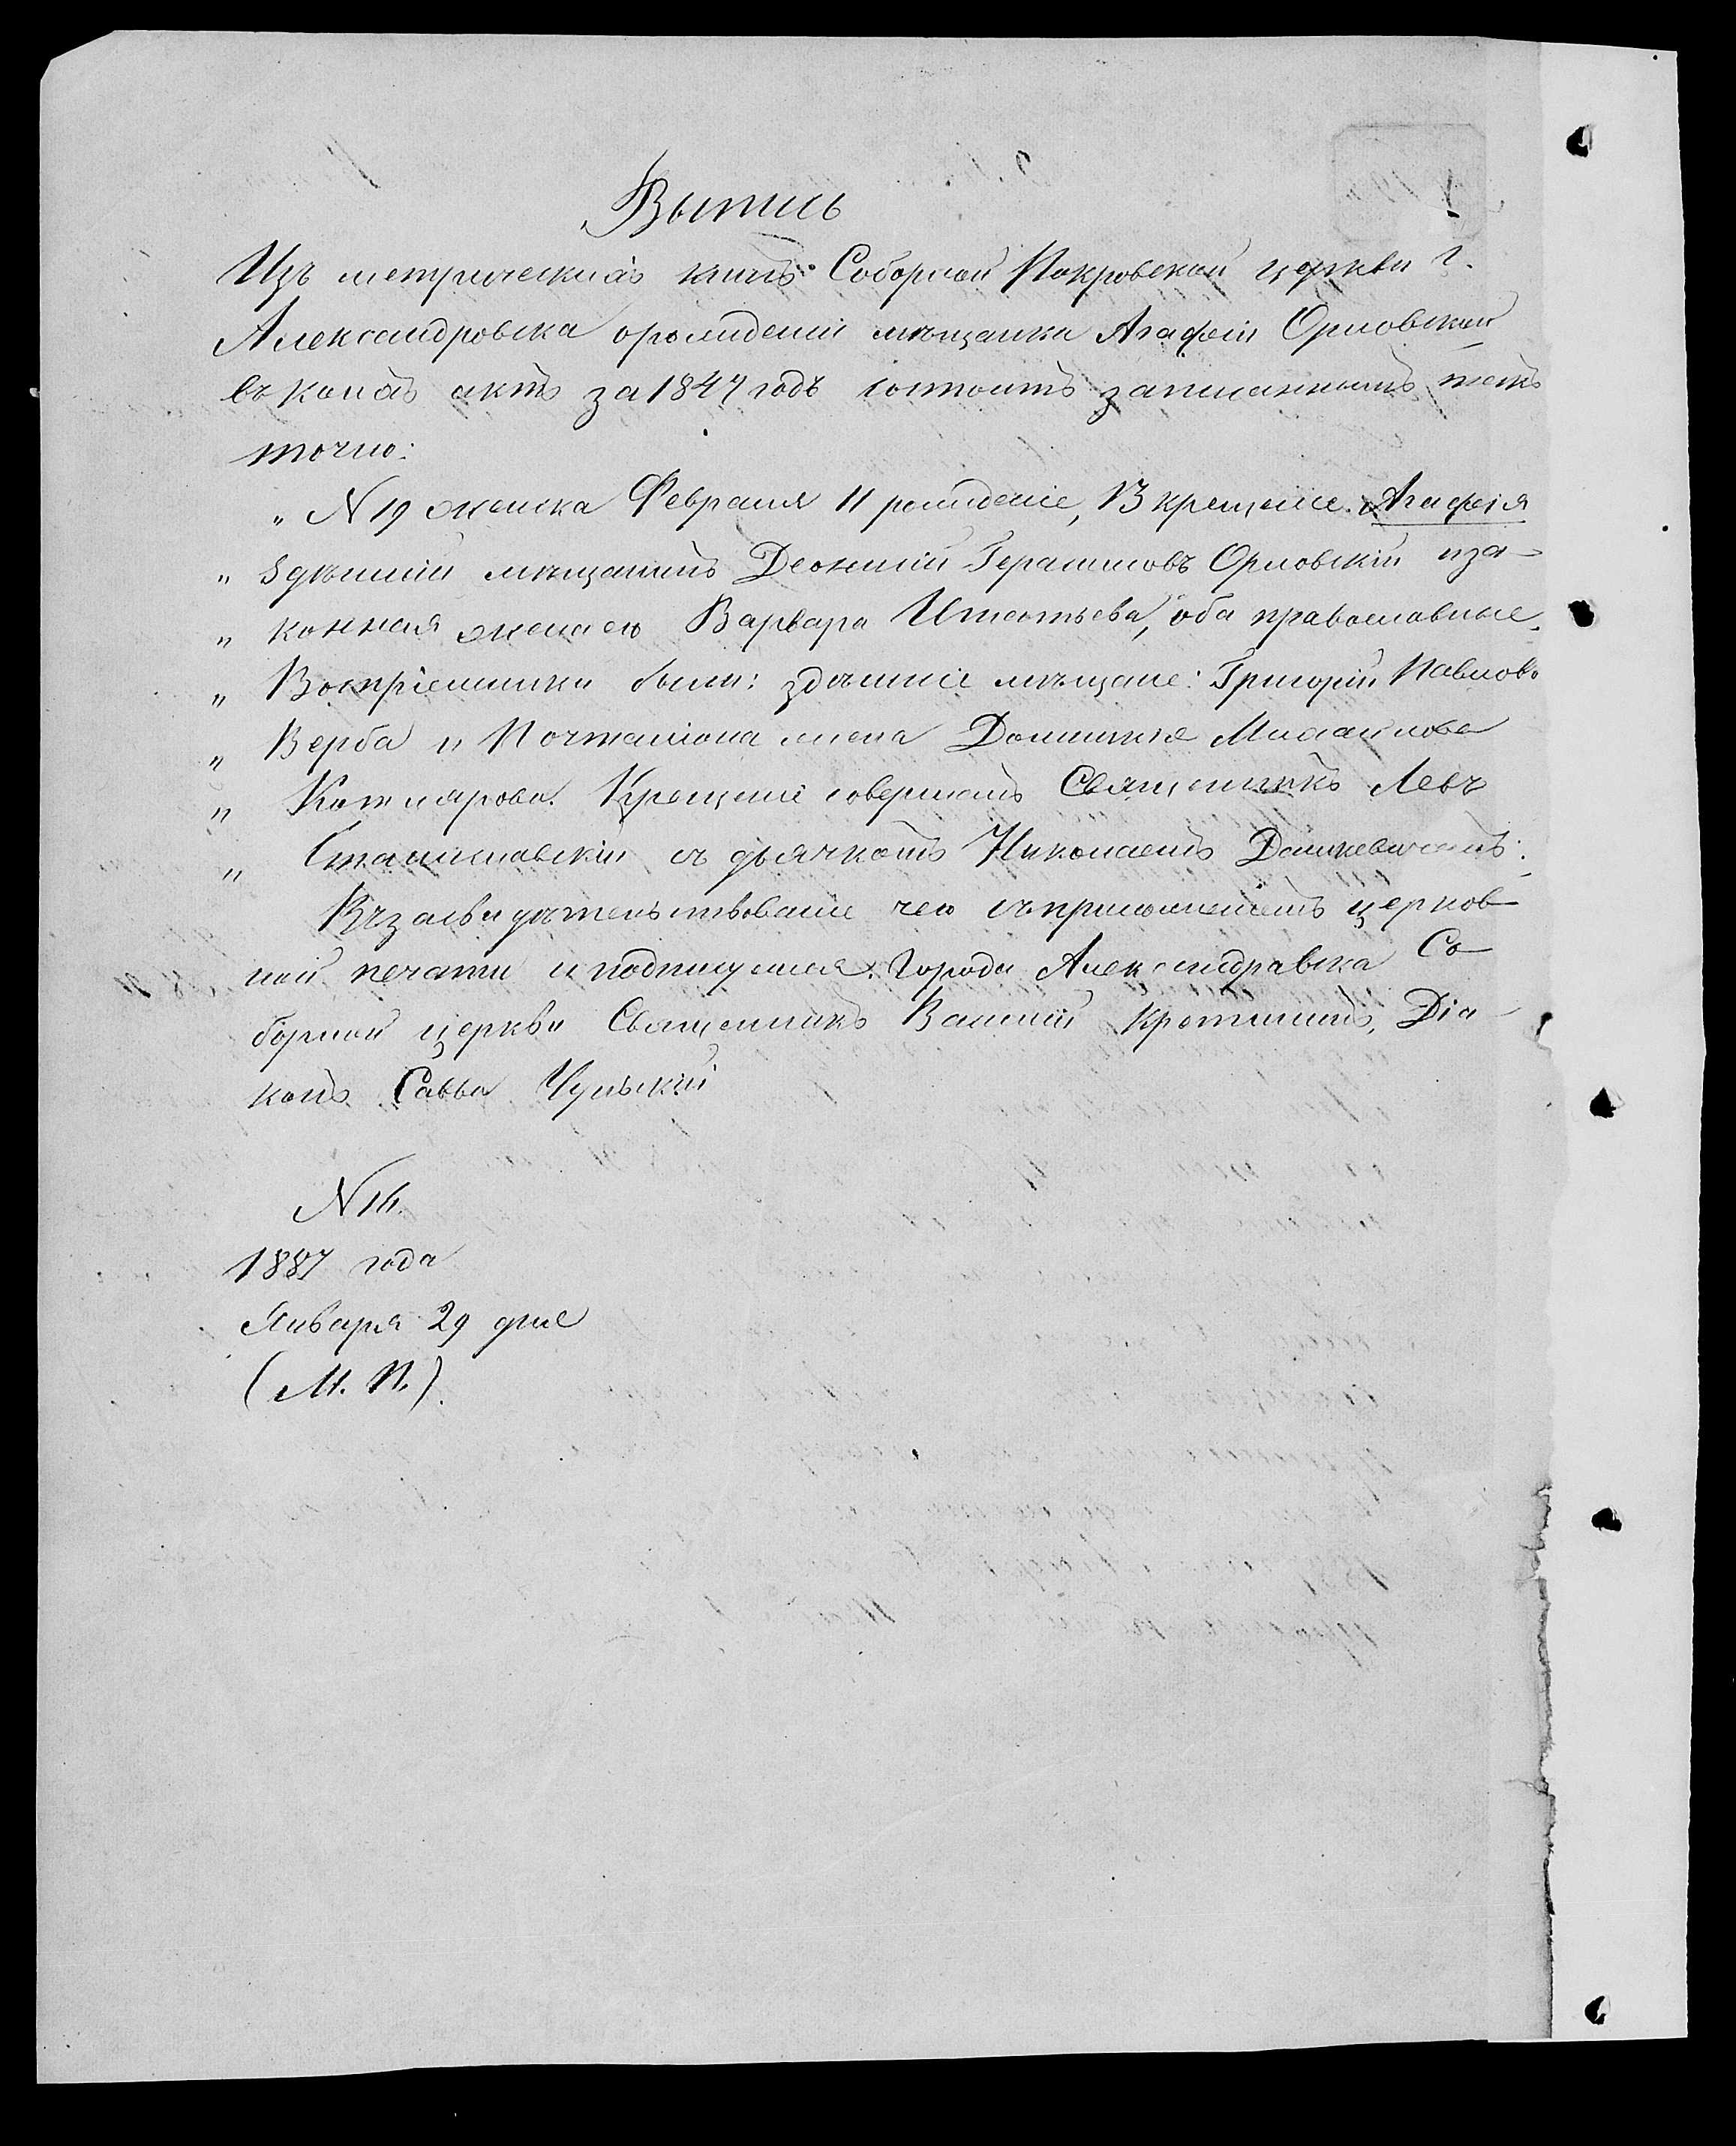 Выпись
Изъ метрическихъ книгъ Соборной Покровской церкви г.
Александровска о рожденіи мѣщанки Агафіи Орловской
въ коихъ актъ за 1847 годъ состоитъ записаннымъ такъ
точно:
„ N 19 женска Февраля 11 рожденіе, 13 крещеніе. Агафія
„ Здѣшній мѣщанинъ Деонисій Герасимовъ Орловскій и за-
„ конная жена его Варвара Игнатьева, оба православные.
„ Воспріемники были: здѣшніе мѣщане: Григорій Павловъ
„ Верба и Почталіона жена Домникія Михайлова
„ Котлярова. Крещеніе совершалъ Священникъ Левъ
„ Станиславскій съ дьячкомъ Николаемъ Дашкевичемъ.
Въ засвидѣтельствованіе чего съ приложеніемъ церков-
ной печати и подпишемся. Города Александравска Со-
борной церкви Священникъ Василій Кротининъ, Діа-
конъ Савва Чульскій
N 16.
1887 года
Января 29 дня
(М. П.).